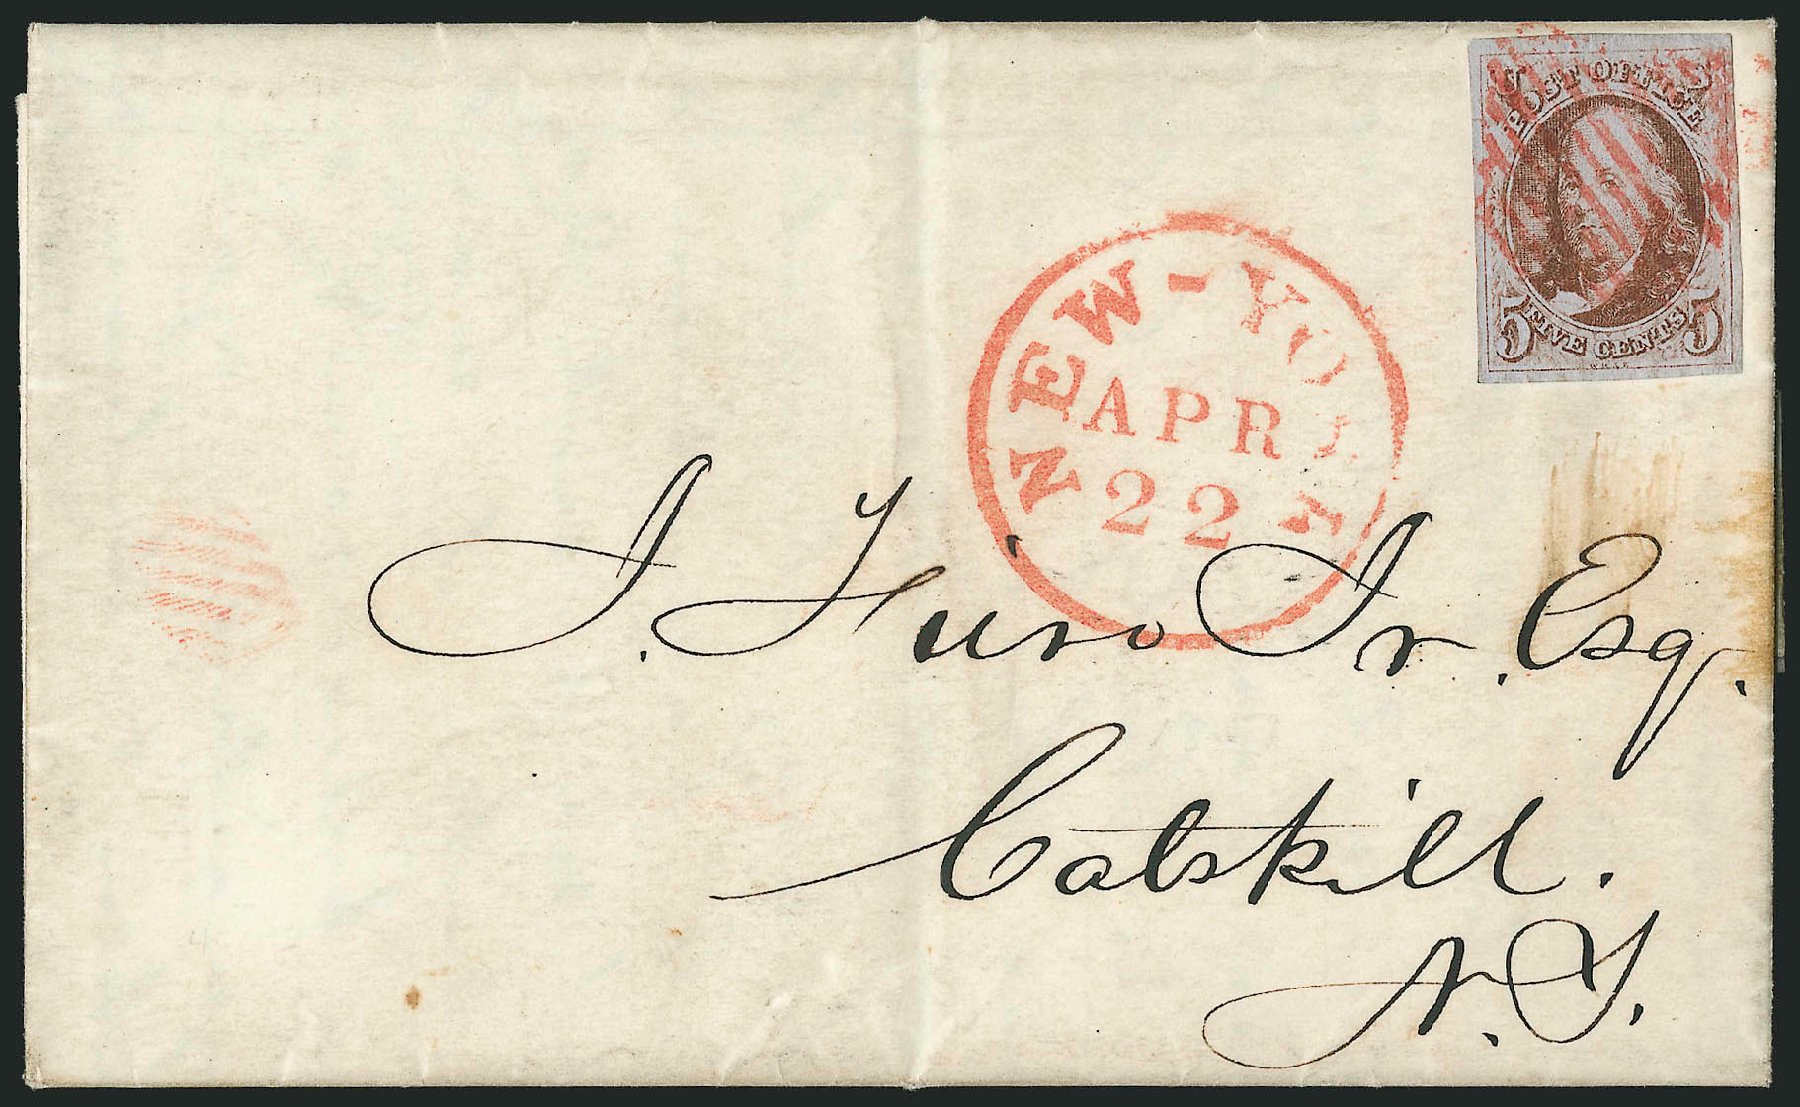 5 POST OFFICE 5
5 FIVE CENTS 5
NEW-YORK
APR
22
J. Hiro Jr. Esq.
Catskill.
N.Y.